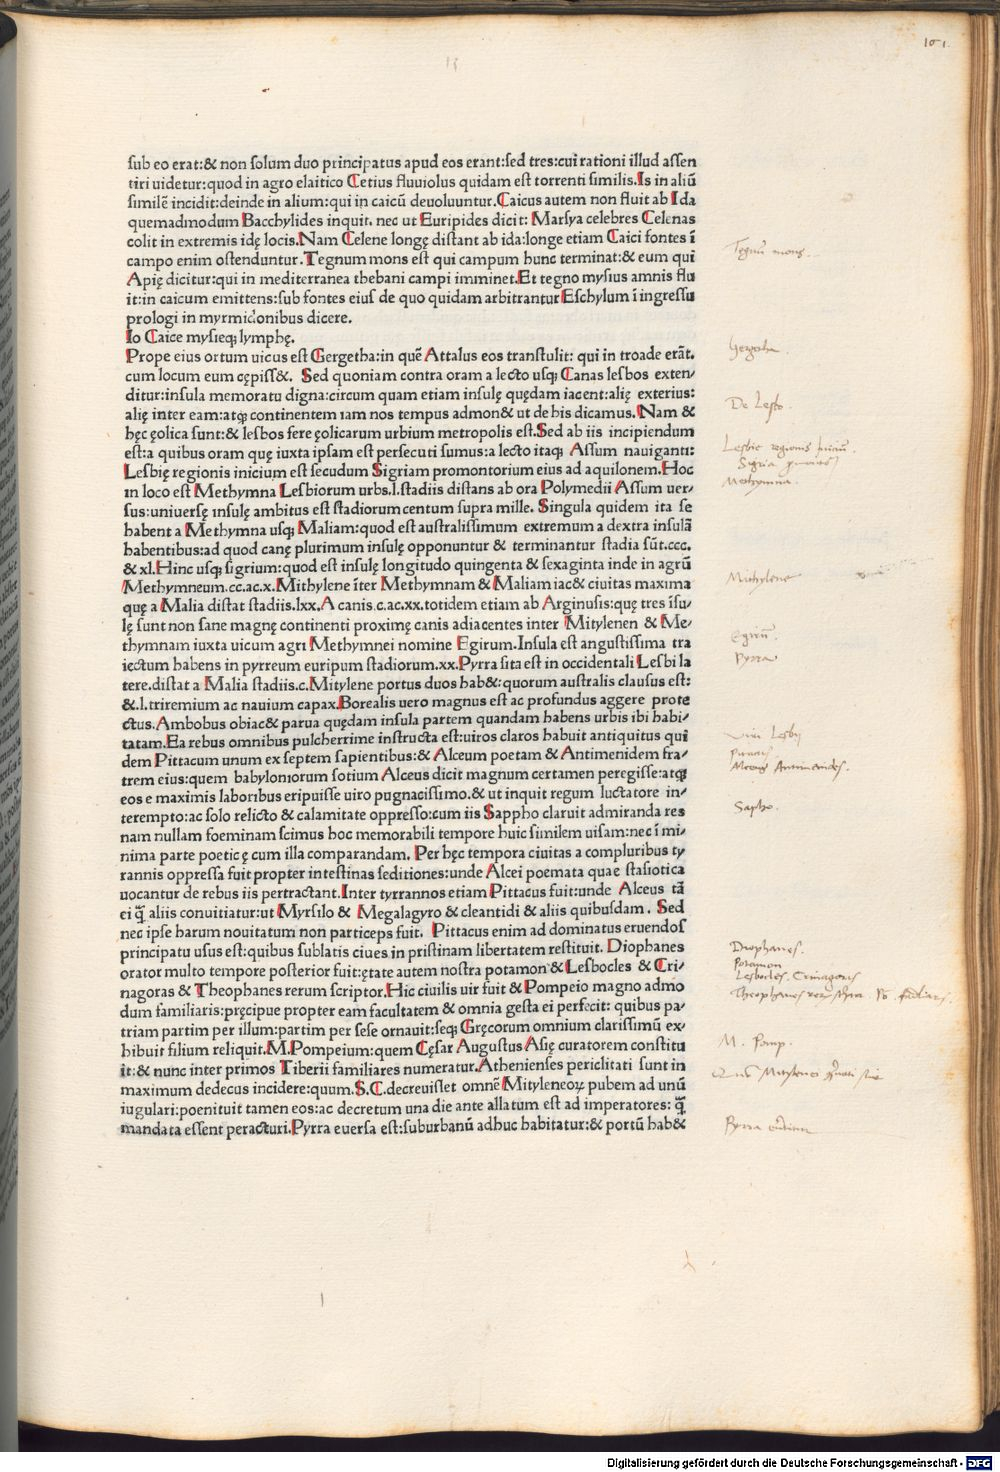 101.
sub eo erat:& non solum duo principatus apud eos erant:sed tres:cui rationi illud assen
tiri uidetur:quod in agro elaitico Cetius fluuiolus quidam est torrenti similis.Is in aliū
similē incidit:deinde in alium:qui in caicū deuoluuntur.Caicus autem non fluit ab Ida
quemadmodum Bacchylides inquit. nec ut Euripides dicit: Marsya celebres Celenas
colit in extremis idę locis.Nam Celene longę distant ab ida:longe etiam Caici fontes ī
campo enim ostenduntur.Tegnum mons est qui campum hunc terminat:& eum qui
Apię dicitur:qui in mediterranea thebani campi imminet.Et tegno mysius amnis flu
it:in caicum emittens:sub fontes eius de quo quidam arbitrantur Eschylum ī ingressu
prologi in myrmidonibus dicere.
Io Caice mysieqꝫ lymphę.
Prope eius ortum uicus est Gergetha:in quē Attalus eos transtulit: qui in troade erāt.
cum locum eum cępiss&. Sed quoniam contra oram a lecto usqꝫ Canas lesbos exten/
ditur:insula memoratu digna:circum quam etiam insulę quędam iacent:alię exterius:
alię inter eam:atqꝫ continentem iam nos tempus admon& ut de his dicamus.Nam &
hęc ęolica sunt:& lesbos fere ęolicarum urbium metropolis est.Sed ab iis incipiendum
est:a quibus oram quę iuxta ipsam est persecuti sumus:a lecto itaqꝫ Assum nauiganti:
Lesbię regionis inicium est secudum Sigriam promontorium eius ad aquilonem.Hoc
in loco est Methymna Lesbiorum urbs.l.stadiis distans ab ora Polymedii Assum uer/
sus:uniuersę insulę ambitus est stadiorum centum supra mille. Singula quidem ita se
habent a Methymna usqꝫ Maliam:quod est australissimum extremum a dextra insulā
habentibus:ad quod canę plurimum insulę opponuntur & terminantur stadia sūt.ccc.
& xl.Hinc usqꝫ sigrium:quod est insulę longitudo quingenta & sexaginta inde in agrū
Methymneum.cc.ac.x.Mithylene īter Methymnam & Maliam iac& ciuitas maxima
quę a Malia distat stadiis.lxx.A canis.c.ac.xx.totidem etiam ab Arginusis:quę tres īsu/
lę sunt non sane magnę continenti proximę canis adiacentes inter Mitylenen & Me/
thymnam iuxta uicum agri Methymnei nomine Egirum.Insula est angustissima tra
iectum habens in pyrreum euripum stadiorum.xx.Pyrra sita est in occidentali Lesbi la
tere.distat a Malia stadiis.c.Mitylene portus duos hab&:quorum australis clausus est:
&.l.triremium ac nauium capax.Borealis uero magnus est ac profundus aggere prote
ctus.Ambobus obiac& parua quędam insula partem quandam habens urbis ibi habi/
tatam.Ea rebus omnibus pulcherrime instructa est:uiros claros habuit antiquitus qui
dem Pittacum unum ex septem sapientibus:& Alceum poetam & Antimenidem fra/
trem eius:quem babyloniorum sotium Alceus dicit magnum certamen peregisse:atqꝫ
eos e maximis laboribus eripuisse uiro pugnacissimo.& ut inquit regum luctatore in/
terempto:ac solo relicto & calamitate oppresso:cum iis Sappho claruit admiranda res
nam nullam foeminam scimus hoc memorabili tempore huic similem uisam:nec ī mi/
nima parte poeticę cum illa comparandam. Per hęc tempora ciuitas a compluribus ty
rannis oppressa fuit propter intestinas seditiones:unde Alcei poemata quae stasiotica
uocantur de rebus iis pertractant.Inter tyrannos etiam Pittacus fuit:unde Alceus tā
ei q̄ aliis conuitiatur:ut Myrsilo & Megalagyro & cleantidi & aliis quibusdam. Sed
nec ipse harum nouitatum non particeps fuit. Pittacus enim ad dominatus eruendos
principatu usus est:quibus sublatis ciues in pristinam libertatem restituit. Diophanes
orator multo tempore posterior fuit:ętate autem nostra potamon & Lesbocles & Cri/
nagoras & Theophanes rerum scriptor.Hic ciuilis uir fuit & Pompeio magno admo
dum familiaris:pręcipue propter eam facultatem & omnia gesta ei perfecit: quibus pa/
triam partim per illum:partim per sese ornauit:seqꝫ Gręcorum omnium clarissimū ex/
hibuit filium reliquit.M.Pompeium:quem Cęsar Augustus Asię curatorem constitu
it:& nunc inter primos Tiberii familiares numeratur.Athenienses periclitati sunt in
maximum dedecus incidere:quum.S.C.decreuisset omnē Mityleneoꝝ pubem ad unū
iugulari:poenituit tamen eos:ac decretum una die ante allatum est ad imperatores: q̄
mandata essent peracturi.Pyrra euersa est:suburbanū adhuc habitatur:& portū hab&
Tegnū mons.
Gergetha.
De Lesbo.
Lesbie regionis iniciū.
Methymna.
Mithylene
Egirū.
Pyrra
Viri Lesbij
Sapho.
Diophanes.
Potamon
Lesbocles. Crinagoras
M. Pomp.
Digitalisierung gefördert durch die Deutsche Forschungsgemeinschaft - DFG